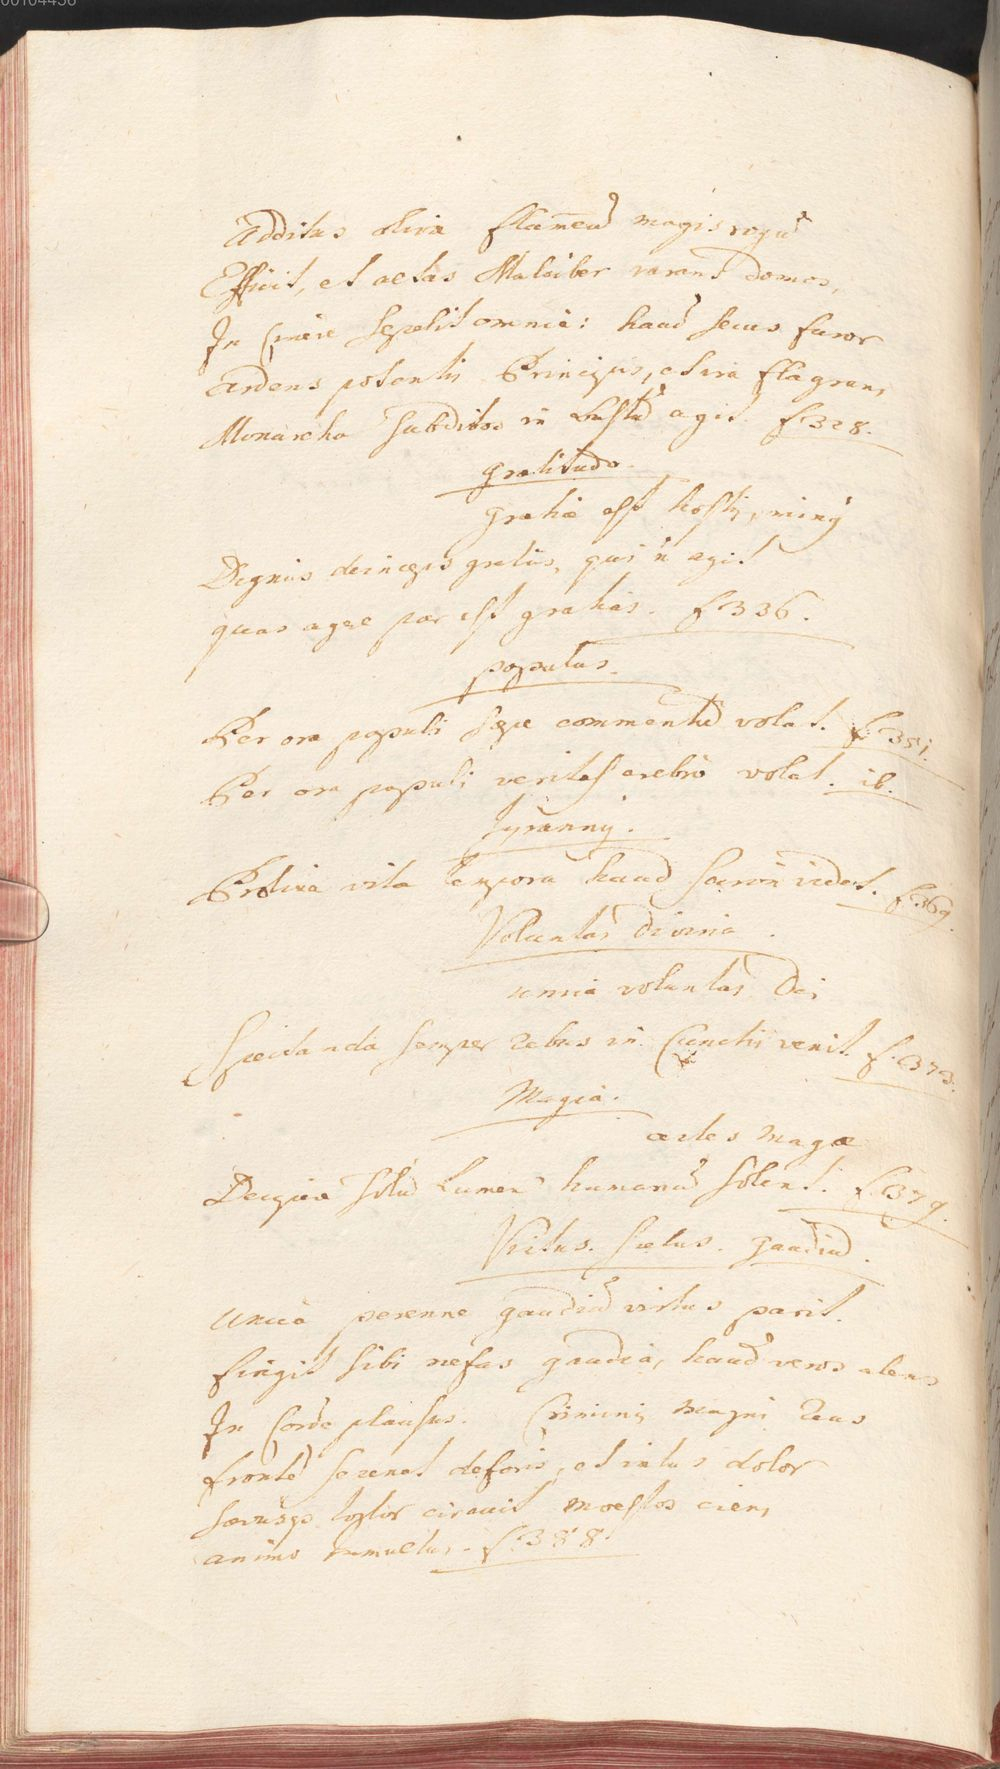 00104436
Additus olivæ flam̄eũ magis rogũ
Efficit, et actas Mulciber rarans domos,
In Cinere sepelit omnia: haud secus furor
Ardens potentis Principis, et ira flagrans
Monarcha subditos in agit. f. 328.
Gratitudo.
gratiæ est hostis, nimis
Dignus deinceps gratiis, qui ñ agit
quas agere par est gratias. f. 336.
populus.
Per ora populi sæpe commentũ volat. f. 351.
Per ora populi veritas crebrò volat. ib.
Tyranny.
Prolixa vita tempora haud vident. f. 369.
Voluntas divina.
unica voluntas Dei
Spectanda semper rebus in Cunctis venit. f. 373.
Magia.
artes magæ
Decipere solũ lumen humanũ solent. f. 379.
Virtus. scelus. gaudiũ.
Unica perenne gaudiũ virtus parit.
fingit sibi nefas gaudia, haud veros alens
In Corde plausus. Criminis magni reus
frontẽ serenat deforis, et intus dolor
sævusq tortor cruciat moestos ciens
animo tumultus. f. 388.